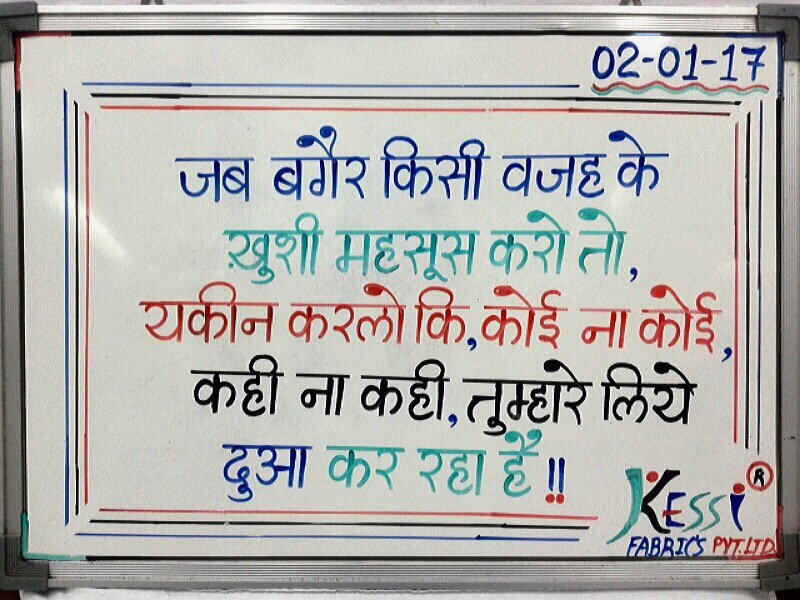 02-01-17
जब बगैर किसी वजह के
ख़ुशी महसूस करो तो,
यकीन करलो कि, कोई ना कोई,
कही ना कही, तुम्हारे लिये
दुआ कर रहा है !!
JKESSI ®
FABRICS PVT.LTD.